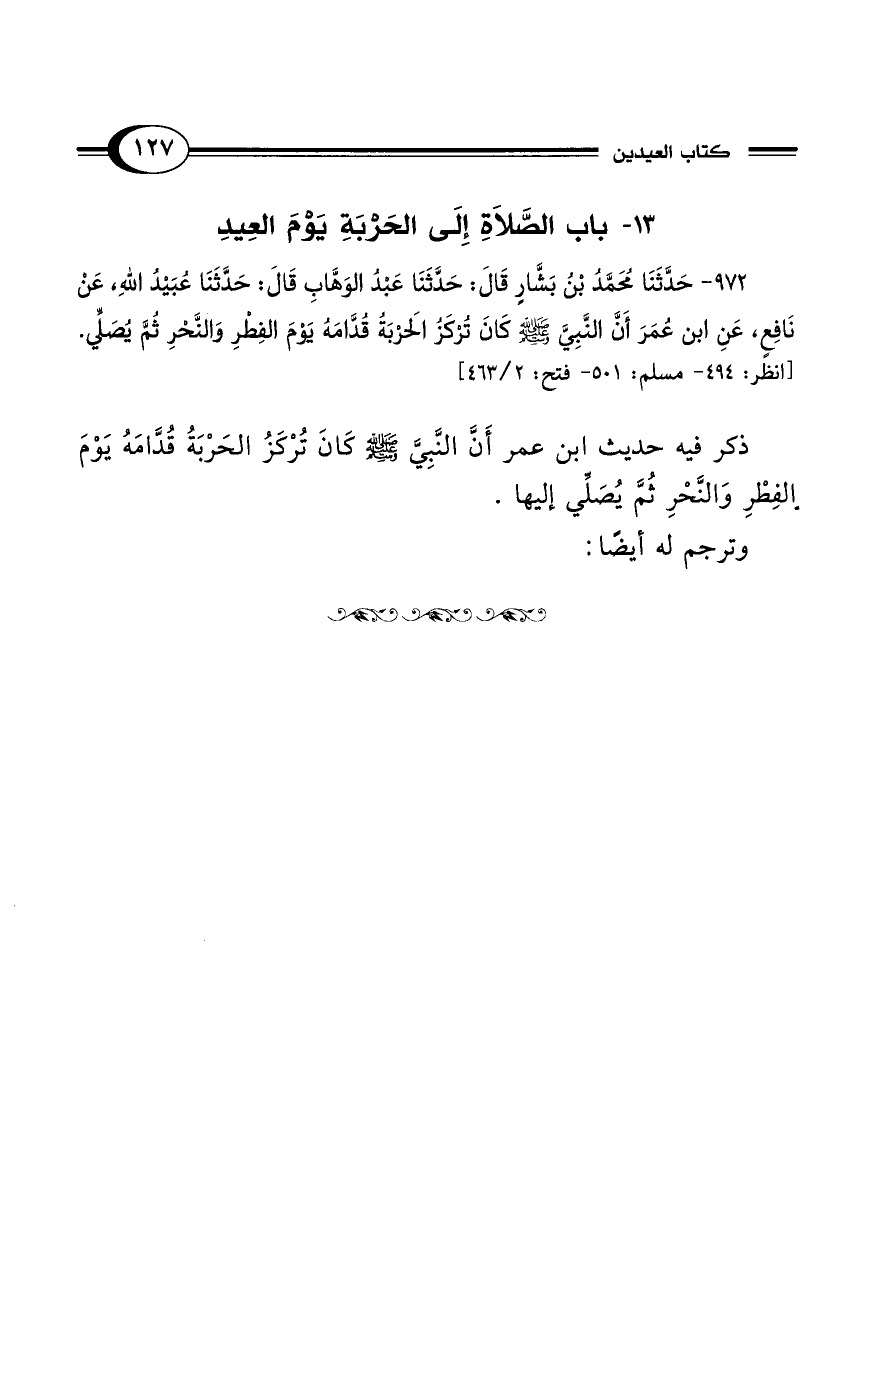 كتاب العيدين ١٢٧
١٣- باب الصَّلاَةِ إِلَى الحَرْبَةِ يَوْمَ العِيدِ
٩٧٢- حَدَّثَنَا مُحَمَّدُ بْنُ بَشَّارٍ قَالَ: حَدَّثَنَا عَبْدُ الوَهَّابِ قَالَ: حَدَّثَنَا عُبَيْدُ اللهِ، عَنْ
نَافِعٍ، عَنِ ابن عُمَرَ أَنَّ النَّبِيَّ ﷺ كَانَ تُرْكَزُ الَحْرْبَةُ قُدَّامَهُ يَوْمَ الفِطْرِ وَالنَّحْرِ ثُمَّ يُصَلِّي.
[انظر: ٤٩٤- مسلم: ٥٠١- فتح: ٢/ ٤٦٣]
ذكر فيه حديث ابن عمر أَنَّ النَّبِيَّ ﷺ كَانَ تُرْكَزُ الحَرْبَةُ قُدَّامَهُ يَوْمَ
الفِطْرِ وَالنَّحْرِ ثُمَّ يُصَلِّي إليها .
وترجم له أيضًا: